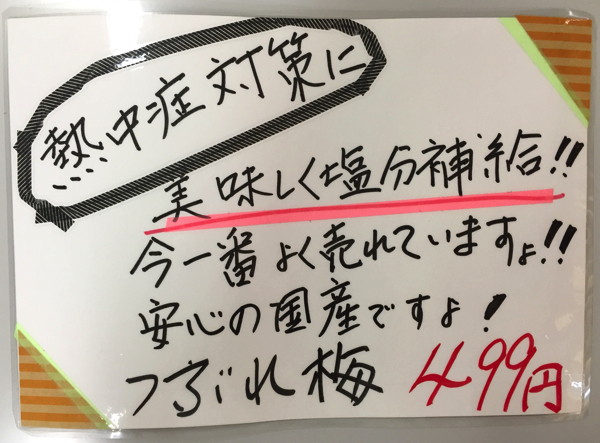 熱中症対策に
美味しく塩分補給!!
今一番よく売れていますよ!!
安心の国産ですよ!
つぶれ梅 499円